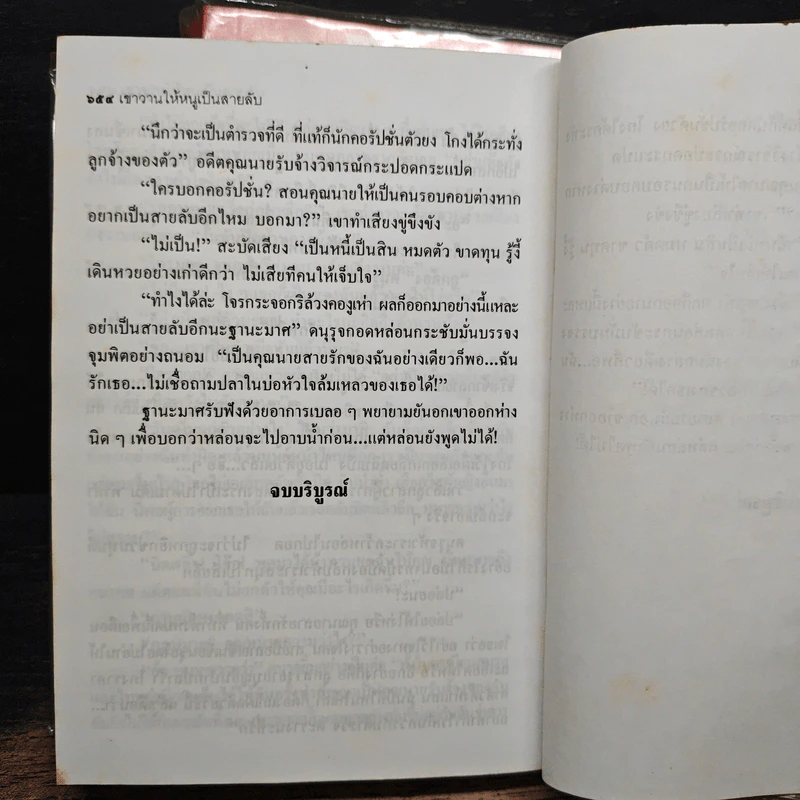 ๖๕๔ เขาวานให้หนูเป็นสายลับ
“นึกว่าจะเป็นตำรวจที่ดี ที่แท้ก็นักคอรัปชั่นตัวยง โกงได้กระทั่ง
ลูกจ้างของตัว” อดีตคุณนายรับจ้างวิจารณ์กระปอดกระแปด
“ใครบอกคอรัปชั่น? สอนคุณนายให้เป็นคนรอบคอบต่างหาก
อยากเป็นสายลับอีกไหม บอกมา?” เขาทำเสียงขู่ขึงขัง
“ไม่เป็น!” สะบัดเสียง “เป็นหนี้เป็นสิน หมดตัว ขาดทุน รู้งี้
เดินหวยอย่างเก่าดีกว่า ไม่เสียทีคนให้เจ็บใจ”
“ทำไงได้ล่ะ โจรกระจอกริล้วงคองูเห่า ผลก็ออกมาอย่างนี้แหละ
อย่าเป็นสายลับอีกนะฐานะมาศ” ดนุรุจกอดหล่อนกระชับมั่นบรรจง
จุมพิตอย่างถนอม “เป็นคุณนายสายรักของฉันอย่างเดียวก็พอ...ฉัน
รักเธอ...ไม่เชื่อถามปลาในบ่อหัวใจล้มเหลวของเธอได้!”
ฐานะมาศรับฟังด้วยอาการเบลอ ๆ พยายามยันอกเขาออกห่าง
นิด ๆ เพื่อบอกว่าหล่อนจะไปอาบน้ำก่อน...แต่หล่อนยังพูดไม่ได้!
จบบริบูรณ์